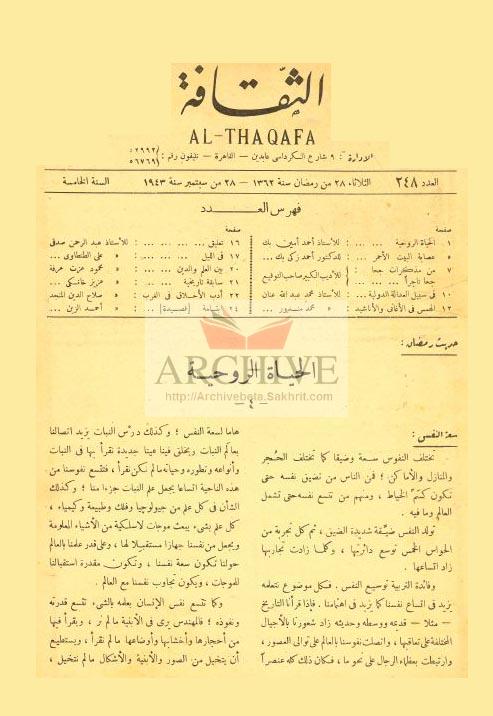 الثقافة
AL-THAQAFA
الإدارة : ٩ شارع الكرداسى عابدين – القاهرة – تليفون رقم :
العدد ٢٤٨
الثلاثاء ٢٨ من رمضان سنة ١٣٦٢ – ٢٨ من سبتمبر سنة ١٩٤٣
السنة الخامسة
فهرس العدد
صفحة
١ الحياة الروحية ... ... : للأستاذ أحمد أمين بك
٥ عصابة البيت الأحمر ... : للدكتور أحمد زكى بك ...
٧ من مذكرات جحا :
جحا تاجراً ... ... للأديب الكبير صاحب التوقيع
١٠ فى سبيل العدالة الدولية ... : للأستاذ محمد عبد الله عنان
١٢ الهمس فى الأغانى والأناشيد : » محمد مندور ...
صفحة
١٦ تعليق ... ... ... : للأستاذ عبد الرحمن صدقى
١٧ فى الليل ... ... ... : » على الطنطاوى ...
٢٠ بين العلم والدين ... ... : » محمود عزت عرفة
٢١ سابقة تاريخية ... ... : » عزيز خانكى ...
٢٢ أدب الأخلاق فى الغرب : » صلاح الدين المنجد
٢٤ ابتسامة [قصيدة] ... : » أحمد الزين ...
ARCHIVE
http://Archivebeta.Sakhrit.com
حديث رمضان :
الحياة الروحية
– ٤ –
سعة النفس :
تختلف النفوس سعة وضيقا كما تختلف الحُجر
والمنازل والأماكن ؛ فمن الناس من تضيق نفسه حتى
تكون كسَمِّ الخياط ، ومنهم من تتسع نفسه حتى تشمل
العالم وما فيه .
تولد النفس ضيّقة شديدة الضيق ، ثم كل تجربة من
الحواس الخمس توسع دائرتها ، وكلما زادت تجاربها
زاد اتساعها .
وفائدة التربية توسيع النفس . فكل موضوع نتعلمه
يزيد فى اتساع نفسنا كما يزيد فى اهتمامنا . فإذا قرأنا التاريخ
– مثلا – قديمه ووسطه وحديثه زاد شعورنا بالأجيال
المختلفة على تعاقبها ، واتصلت نفوسنا بالعالم على توالى العصور ،
وارتبطت بعظماء الرجال على نحو ما ، فكان ذلك كله عنصراً
هاما لسعة النفس ؛ وكذلك درْس النبات يزيد اتصالنا
بعالم النبات ويخلق فينا عينا جديدة نقرأ بها فى النبات
وأنواعه وتطوره وحياته مالم نكن نقرأ ، فتتسع نفوسنا من
هذه الناحية اتساعا يجعل علم النبات جزءا منا ؛ وكذلك
الشأن فى كل علم من جيولوجيا وفلك وطبيعة وكيمياء ،
كل علم بشىء يبعث موجات لاسلكية من الأشياء المعلومة
ويجعل من نفسنا جهازا مستقبِلا لها ، وعلى قدر علمنا بالعالم
حولنا تكون سعة نفسنا ، وتكون مقدرة استقبالنا
للموجات ، ويكون تجاوب نفسنا مع العالم .
وكما تتسع نفس الإنسان بعلمه بالشىء تتسع قدرته
ونفوذه ؛ فالمهندس يرى فى الأبنية مالم نر ، ويقرأ فيها
من أحجارها وأخشابها وأوضاعها مالم نقرأ ، ويستطيع
أن يتخيل من الصور والأبنية والأشكال مالم نتخيل ،